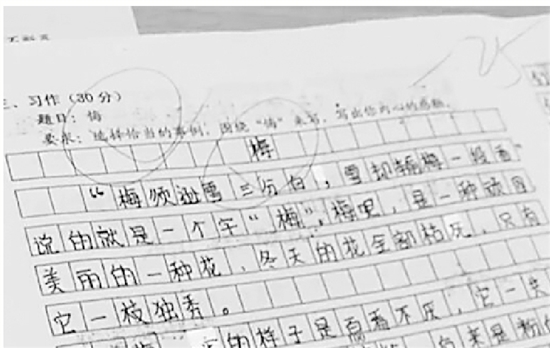 三、习作（30分）
题目：悔
要求：选择恰当的事例，围绕“悔”来写，写出你内心的感触。
梅
“梅须逊雪三分白，雪却输梅一段香”
说的就是一个字“梅”，梅吧，是一种
美丽的一种花，冬天的花全部枯死，只有
它一枝独秀。
的样子是百看不厌，它一